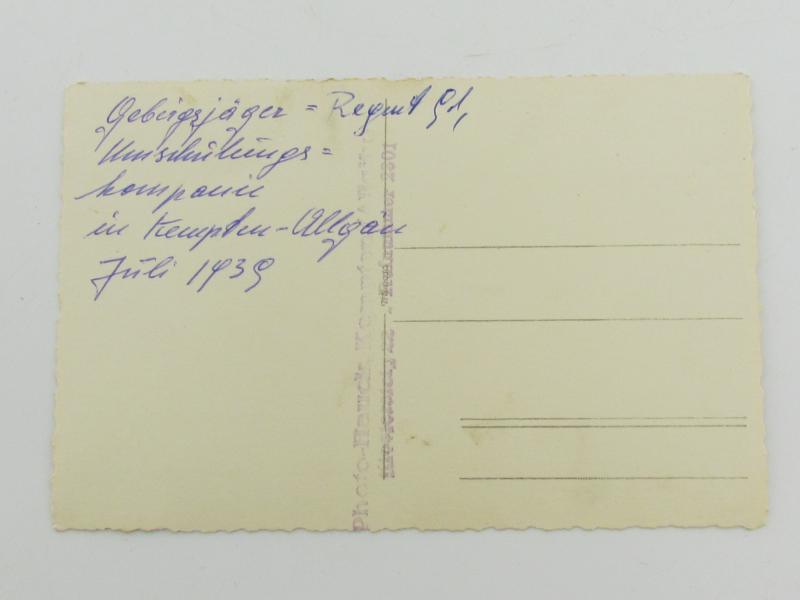 Gebirgsjäger = Regmt 91,
Umschulungs=
kompanie
in Kempten-Allgäu
Juli 1939
Photo-Hauck